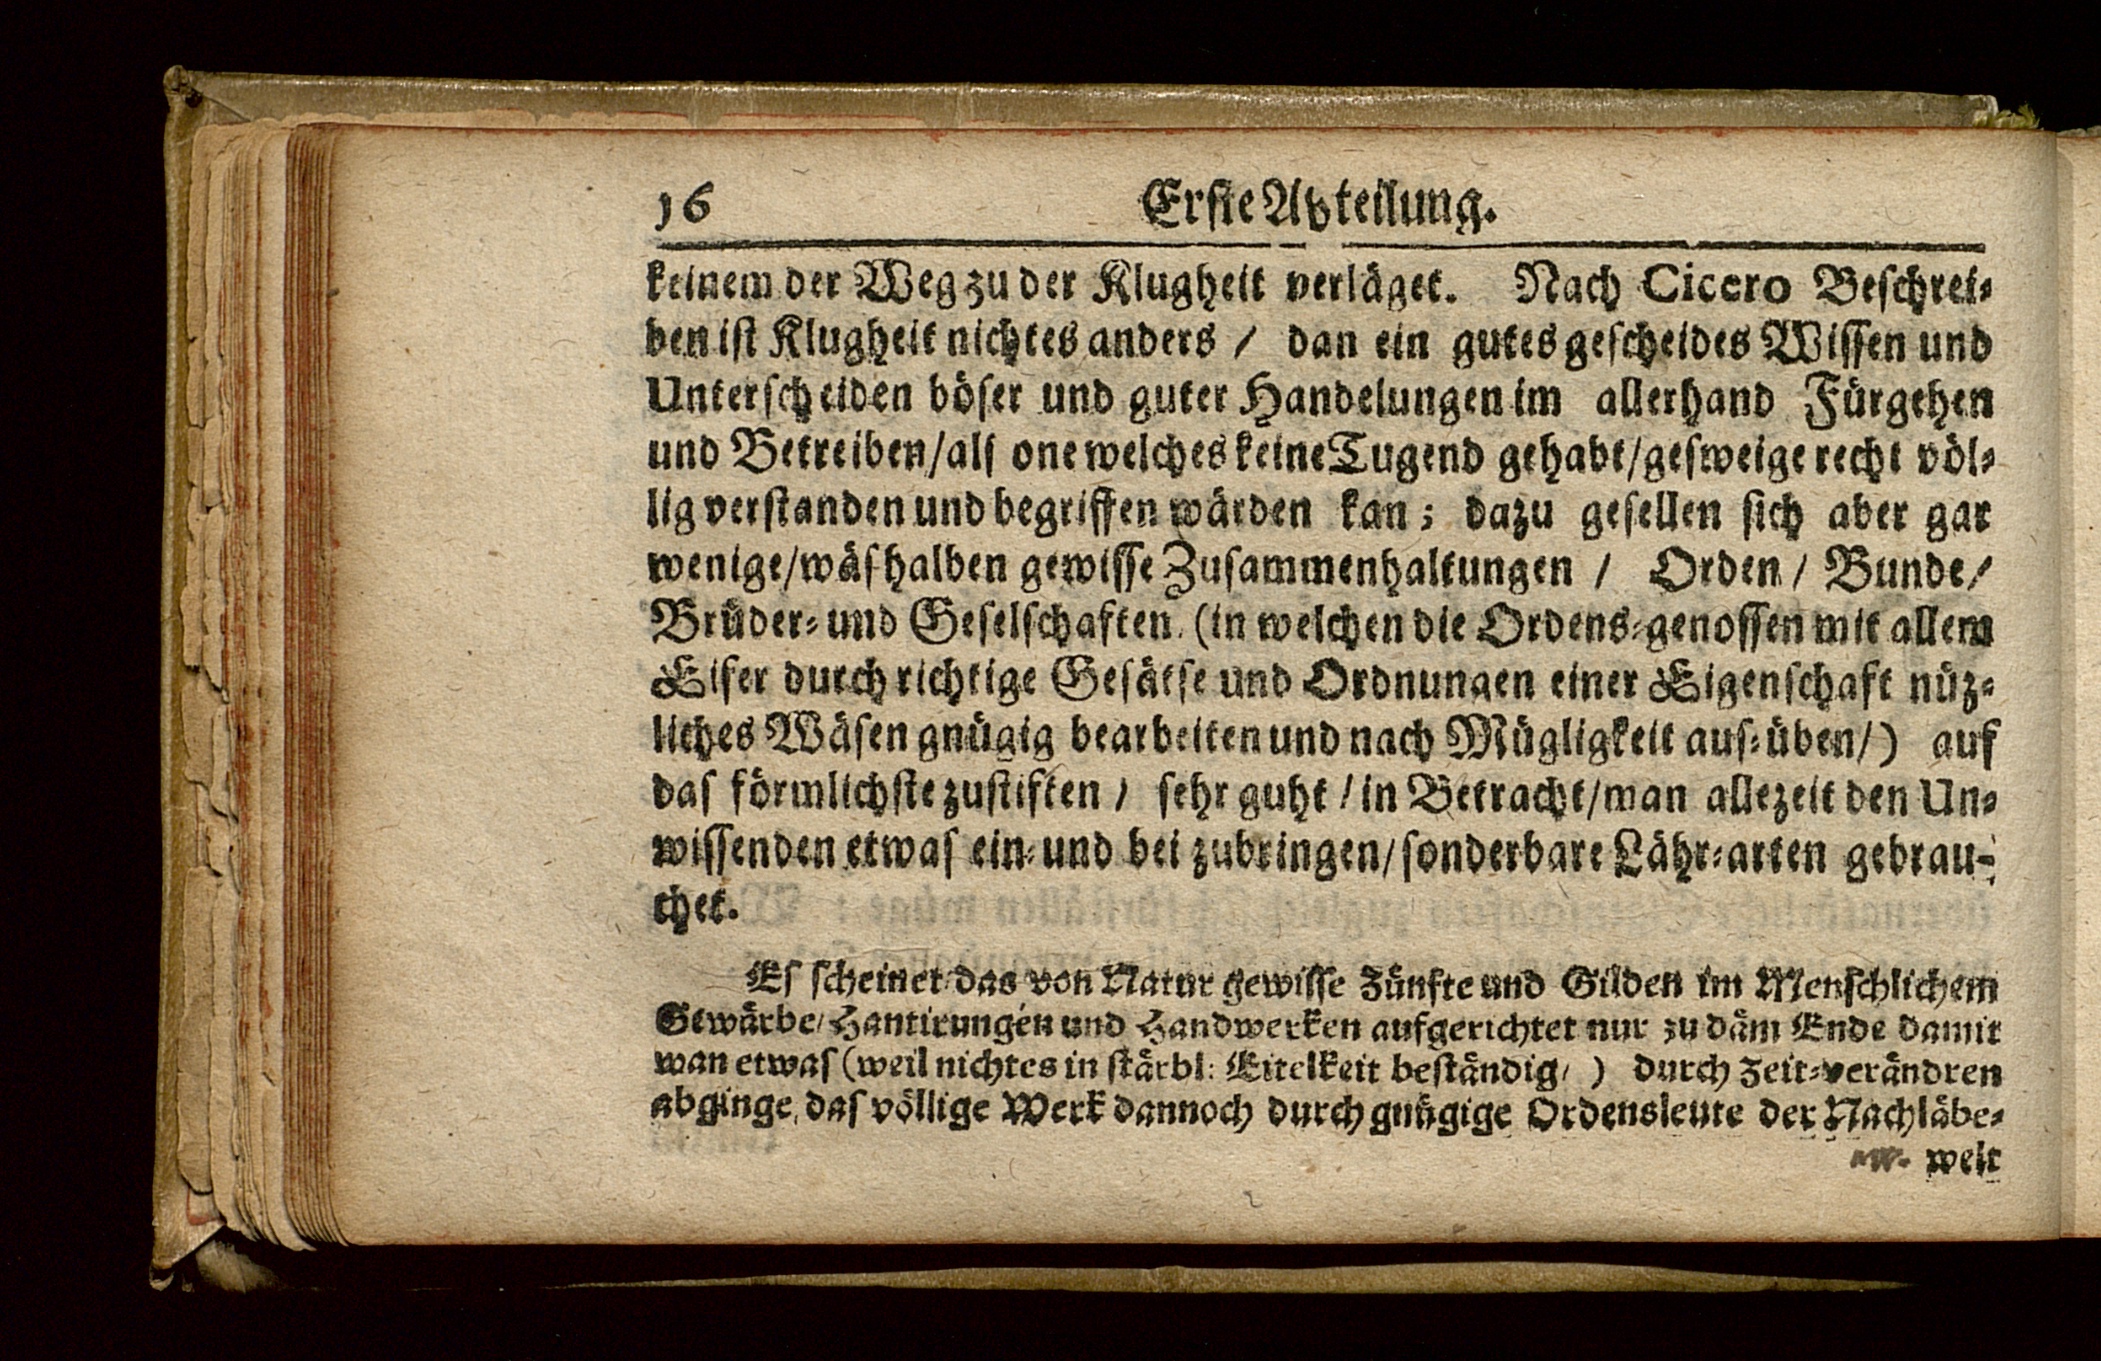 16 Erste Abteilung.
keinem der Weg zu der Klugheit verläget. Nach Cicero Beschrei⸗
ben ist Klugheit nichtes anders / dan ein gutes gescheides Wissen und
Unterscheiden böser und guter Handelungen im allerhand Fürgehen
und Betreiben/als one welches keine Tugend gehabt/gesweige recht völ⸗
lig verstanden und begriffen wärden kan; dazu gesellen sich aber gar
wenige/wäshalben gewisse Zusammenhaltungen / Orden / Bunde/
Brüder⸗ und Geselschaften (in welchen die Ordens⸗genossen mit allem
Eifer durch richtige Gesätse und Ordnungen einer Eigenschaft nüz⸗
liches Wäsen gnügig bearbeiten und nach Mügligkeit aus⸗üben/) auf
das förmlichste zustiften / sehr guht / in Betracht/man allezeit den Un⸗
wissenden etwas ein⸗ und bei zubringen/sonderbare Lähr⸗arten gebrau-
chet.
Es scheinet/das von Natur gewisse Zünfte und Gilden im Menschlichem
Gewärbe/Hantirungen und Handwerken aufgerichtet nur zu däm Ende damit
wan etwas (weil nichtes in stärbl: Eitelkeit beständig/ ) durch Zeit⸗verändren
abginge, das völlige Werk dannoch durch gnügige Ordensleute der Nachläbe⸗
welt